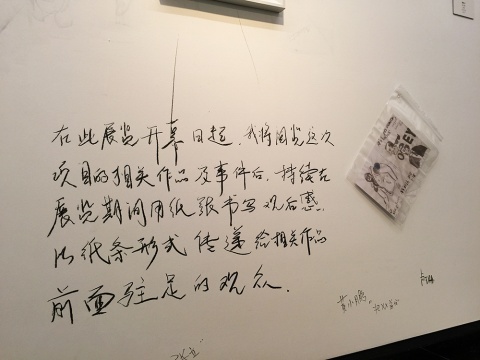 在此展览开幕日起，我将围览这次
项目的相关作品及事件后，持续在
展览期间用纸张书写观后感，
以纸条形式传递给相关作品
前面驻足的观众.
黄小鹏
OBEY